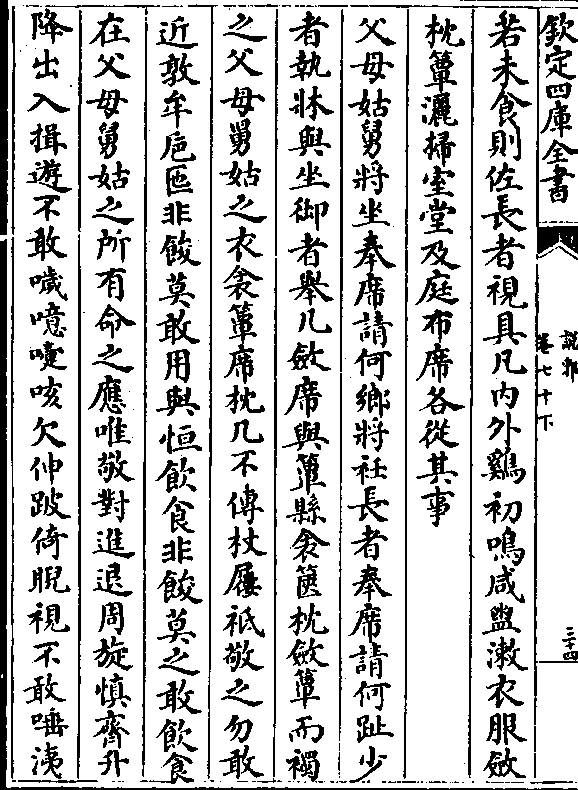 欽定四庫全書
說郛
卷七十下
三十四
若未食則佐長者視具凡內外鷄初鳴咸盥漱衣服斂
枕簟灑掃室堂及庭布席各從其事
父母姑舅將坐奉席請何鄉將衽長者奉席請何趾少
者執牀與坐御者舉几斂席與簟縣衾篋枕斂簟而襡
之父母舅姑之衣衾簟席枕几不傳杖屨祗敬之勿敢
近敦牟巵匜非餕莫敢用與恒飲食非餕莫之敢飲食
在父母舅姑之所有命之應唯敬對進退周旋慎齊升
降出入揖遊不敢噦噫嚏咳欠伸跛倚睨視不敢唾洟